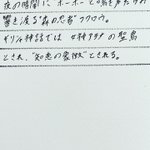 夜の時間に、ホーホーと鳴き声だけが
響き渡る"森の忍者"フクロウ。
ギリシャ神話では女神アテナの聖鳥
とされ、"知恵の象徴"とされる。